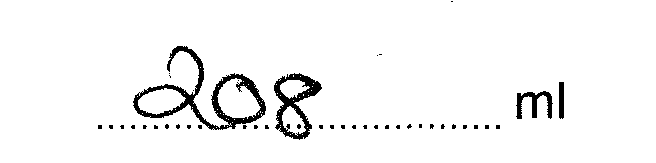 208 ml